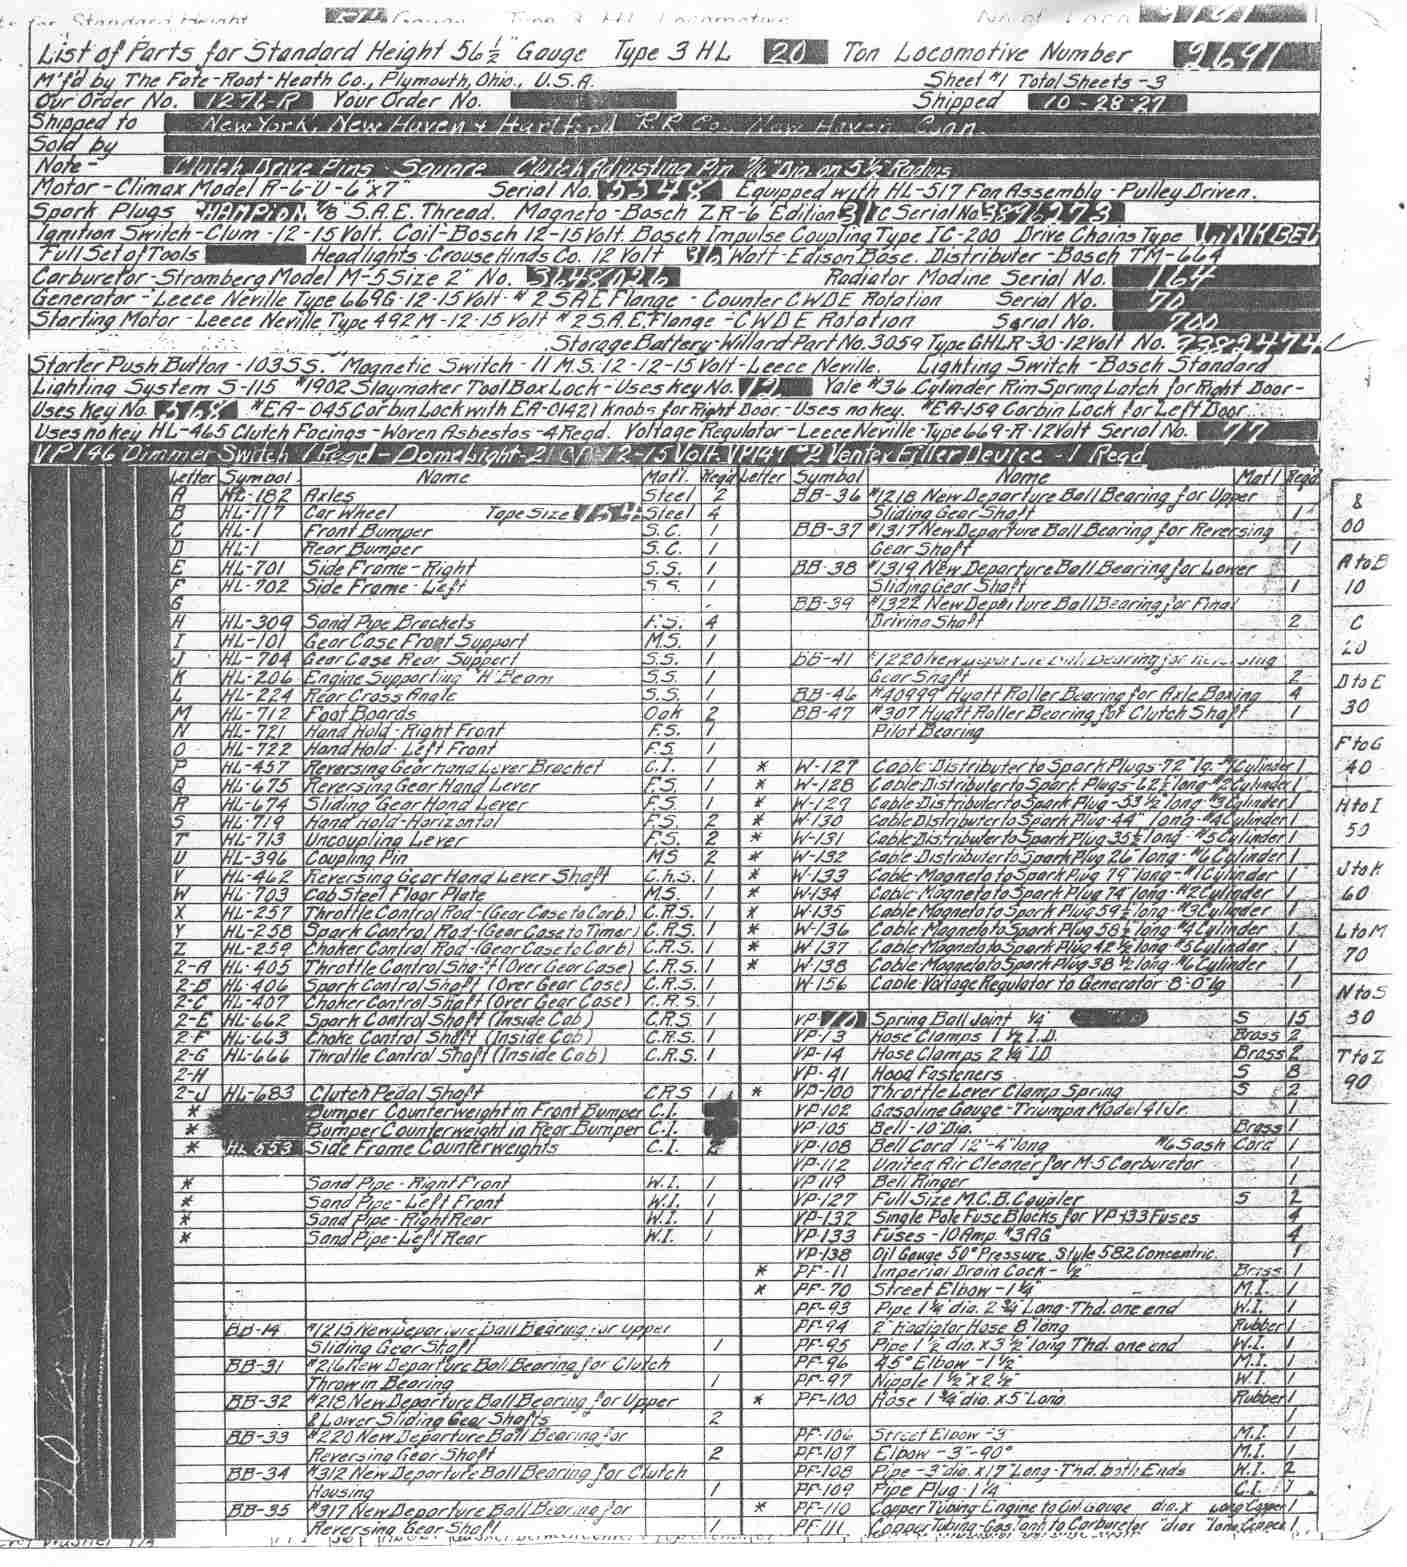 List of Parts for Standard Height 56 1/2" Gauge Type 3 HL 20 Ton Locomotive Number 2691
M'f'd by The Fate-Root-Heath Co., Plymouth, Ohio., U.S.A. Sheet #1 Total Sheets-3
Our Order No. 1276-R Your Order No. Shipped 10-28-27
Shipped to New York, New Haven & Hartford R.R Co., New Haven Conn.
Sold by
Note- Clutch Drive Pins - Square Clutch Adjusting Pin 7/16" Dia. on 5 1/2" Radius
Motor-Climax Model R-6-U-6"x7" Serial No. 5548 Equipped with HL-517 Fan Assembly-Pulley Driven.
Spark Plugs CHAMPION 7/8" S.A.E. Thread. Magneto-Bosch ZR-6 Edition 31 C Serial No. 3896273
Ignition Switch-Clum-12-15 Volt. Coil-Bosch 12-15 Volt. Bosch Impulse Coupling Type IC-200 Drive Chains Type LINK BEL
Full Set of Tools Headlights-Crouse Hinds Co. 12 Volt 36 Watt-Edison Base. Distributer-Bosch TM-664
Carburetor-Stromberg Model M-5 Size 2" No. 3648026 Radiator Modine Serial No. 164
Generator-Leece Neville Type 669G-12-15 Volt-#2 S.A.E Flange-Counter CWDE Rotation Serial No. 70
Starting Motor-Leece Neville Type 492M-12-15 Volt #2 S.A.E. Flange-CWDE Rotation Serial No. 700
Storage Battery-Willard Part No. 3059 Type GHLR-30-12 Volt No. 3389474
Starter Push Button-103SS. Magnetic Switch-11 M.S. 12-12-15 Volt-Leece Neville. Lighting Switch-Bosch Standard
Lighting System S-115 #1902 Slaymaker Tool Box Lock-Uses Key No. 12 Yale #36 Cylinder Rim Spring Latch for Right Door-
Uses Key No. 568 #EA-045 Corbin Lock with EA-01421 Knobs for Right Door-Uses no key. #EA-159 Corbin Lock for Left Door
Uses no key HL-465 Clutch Facings-Woven Asbestos-4 Reqd. Voltage Regulator-Leece Neville-Type 669-R-12 Volt Serial No. 77
VP146 Dimmer Switch 1 Reqd-Dome Light-21 CP-12-15 Volt. VP147 #2 Ventex Filler Device-1 Reqd
Letter Symbol Name Mat'l. Req'd Letter Symbol Name Mat'l Req'd
A HL-182 Axles Steel 2 BB-36 #1218 New Departure Ball Bearing for Upper
B HL-117 Car Wheel Tape Size 154 Steel 4 Sliding Gear Shaft 1
C HL-1 Front Bumper S.C. 1 BB-37 #1317 New Departure Ball Bearing for Reversing
D HL-1 Rear Bumper S.C. 1 Gear Shaft 1
E HL-701 Side Frame-Right S.S. 1 BB-38 #1319 New Departure Ball Bearing for Lower
F HL-702 Side Frame-Left S.S. 1 Sliding Gear Shaft 1
G BB-39 #1322 New Departure Ball Bearing for Final
H HL-309 Sand Pipe Brackets F.S. 4 Driving Shaft 2
I HL-101 Gear Case Front Support M.S. 1
J HL-704 Gear Case Rear Support S.S. 1 BB-41 #1220 New Departure Ball Bearing for Reversing
K HL-206 Engine Supporting "H" Beam S.S. 1 Gear Shaft 2
L HL-224 Rear Cross Angle S.S. 1 BB-46 #40999 Hyatt Roller Bearing for Axle Boxing 4
M HL-712 Foot Boards Oak 2 BB-47 #307 Hyatt Roller Bearing for Clutch Shaft 1
N HL-721 Hand Hold-Right Front F.S. 1 Pilot Bearing
O HL-722 Hand Hold-Left Front F.S. 1
P HL-457 Reversing Gear Hand Lever Bracket C.I. 1 * W-127 Cable-Distributer to Spark Plugs-72" lg. #1 Cylinder 1
Q HL-675 Reversing Gear Hand Lever F.S. 1 * W-128 Cable Distributer to Spark Plugs-62 1/2" long-#2 Cylinder 1
R HL-674 Sliding Gear Hand Lever F.S. 1 * W-129 Cable Distributer to Spark Plug-53 1/2 long-#3 Cylinder 1
S HL-719 Hand Hold-Horizontal F.S. 2 * W-130 Cable Distributer to Spark Plug-44" long-#4 Cylinder 1
T HL-713 Uncoupling Lever F.S. 2 * W-131 Cable-Distributer to Spark Plug 35 1/2 long-#5 Cylinder 1
U HL-396 Coupling Pin M.S 2 * W-132 Cable-Distributer to Spark Plug 26" long-#6 Cylinder 1
V HL-462 Reversing Gear Hand Lever Shaft C.R.S. 1 * W-133 Cable-Magneto to Spark Plug 79" long-#1 Cylinder 1
W HL-703 Cab Steel Floor Plate M.S. 1 * W-134 Cable-Magneto to Spark Plug 74" long-#2 Cylinder 1
X HL-257 Throttle Control Rod-(Gear Case to Carb.) C.R.S. 1 * W-135 Cable Magneto to Spark Plug 59 1/2 long-#3 Cylinder 1
Y HL-258 Spark Control Rod-(Gear Case to Timer) C.R.S. 1 * W-136 Cable Magneto to Spark Plug 58 1/2 long #4 Cylinder 1
Z HL-259 Choker Control Rod-(Gear Case to Carb) C.R.S. 1 * W-137 Cable-Magneto to Spark Plug 42 1/2 long-#5 Cylinder 1
2-A HL-405 Throttle Control Shaft (Over Gear Case) C.R.S. 1 * W-138 Cable-Magneto to Spark Plug 38 1/2 long-#6 Cylinder 1
2-B HL-406 Spark Control Shaft (Over Gear Case) C.R.S. 1 W-156 Cable-Voltage Regulator to Generator 8'-0" lg 1
2-C HL-407 Choker Control Shaft (Over Gear Case) C.R.S. 1
2-E HL-662 Spark Control Shaft (Inside Cab) C.R.S. 1 VP-10 Spring Ball Joint 1/4" S 15
2-F HL-663 Choke Control Shaft (Inside Cab) C.R.S. 1 VP-13 Hose Clamps 1 1/2 I.D. Brass 2
2-G HL-666 Throttle Control Shaft (Inside Cab) C.R.S. 1 VP-14 Hose Clamps 2 1/4 I.D Brass 2
2-H VP-41 Hood Fasteners S 8
2-J HL-683 Clutch Pedal Shaft C.R.S 1 * VP-100 Throttle Lever Clamp Spring S 2
* Bumper Counterweight in Front Bumper C.I. VP-102 Gasoline Gauge-Triumph Model 41 Jr. 1
* Bumper Counterweight in Rear Bumper C.I. VP-105 Bell-10" Dia. Brass 1
* HL-553 Side Frame Counterweights C.I. 2 VP-108 Bell Cord 12'-4" long #6 Sash Cord 1
VP-112 United Air Cleaner for M-5 Carburetor 1
* Sand Pipe-Right Front W.I. 1 VP 119 Bell Ringer 1
* Sand Pipe-Left Front W.I. 1 VP-127 Full Size M.C.B. Coupler S 2
* Sand Pipe-Right Rear W.I. 1 VP-132 Single Pole Fuse Blocks for VP-133 Fuses 4
* Sand Pipe-Left Rear W.I. 1 VP-133 Fuses-10 Amp. #3AG 4
VP-138 Oil Gauge 50# Pressure, Style 582 Concentric. 1
* PF-11 Imperial Drain Cock-1/2" Brass 1
* PF-70 Street Elbow-1 1/4" M.I. 1
PF-93 Pipe 1 1/4" dia. 2 3/4" Long-Thd. one end W.I. 1
BB-14 #1215 New Departure Ball Bearing for Upper PF-94 2" Radiator Hose 8" long Rubber 1
Sliding Gear Shaft 1 PF-95 Pipe 1 1/2" dia. x 3 1/2" long Thd. one end W.I. 1
BB-31 #216 New Departure Ball Bearing for Clutch PF-96 45° Elbow-1 1/2" M.I. 1
Throw in Bearing 1 PF-97 Nipple 1 1/2" x 2 1/2" W.I. 1
BB-32 #218 New Departure Ball Bearing for Upper * PF-100 Hose 1 3/4" dia. x 5" Long Rubber 1
& Lower Sliding Gear Shafts 2 1
BB-33 #220 New Departure Ball Bearing for PF-106 Street Elbow-3" M.I. 1
Reversing Gear Shaft 2 PF-107 Elbow-3"-90° M.I. 1
BB-34 #312 New Departure Ball Bearing for Clutch PF-108 Pipe-3" dia. x 17" Long-Thd. both Ends W.I. 2
Housing 1 PF-109 Pipe Plug-1 1/4" C.I. 1
BB-35 #317 New Departure Ball Bearing for * PF-110 Copper Tubing-Engine to Oil Gauge dia. x Long Copper 1
Reversing Gear Shaft 1 PF-111 Copper Tubing-Gas Tank to Carburetor "dia x "long Copper 1
&
00
A to B
10
C
20
D to E
30
F to G
40
H to I
50
J to K
60
L to M
70
N to S
30
T to Z
90